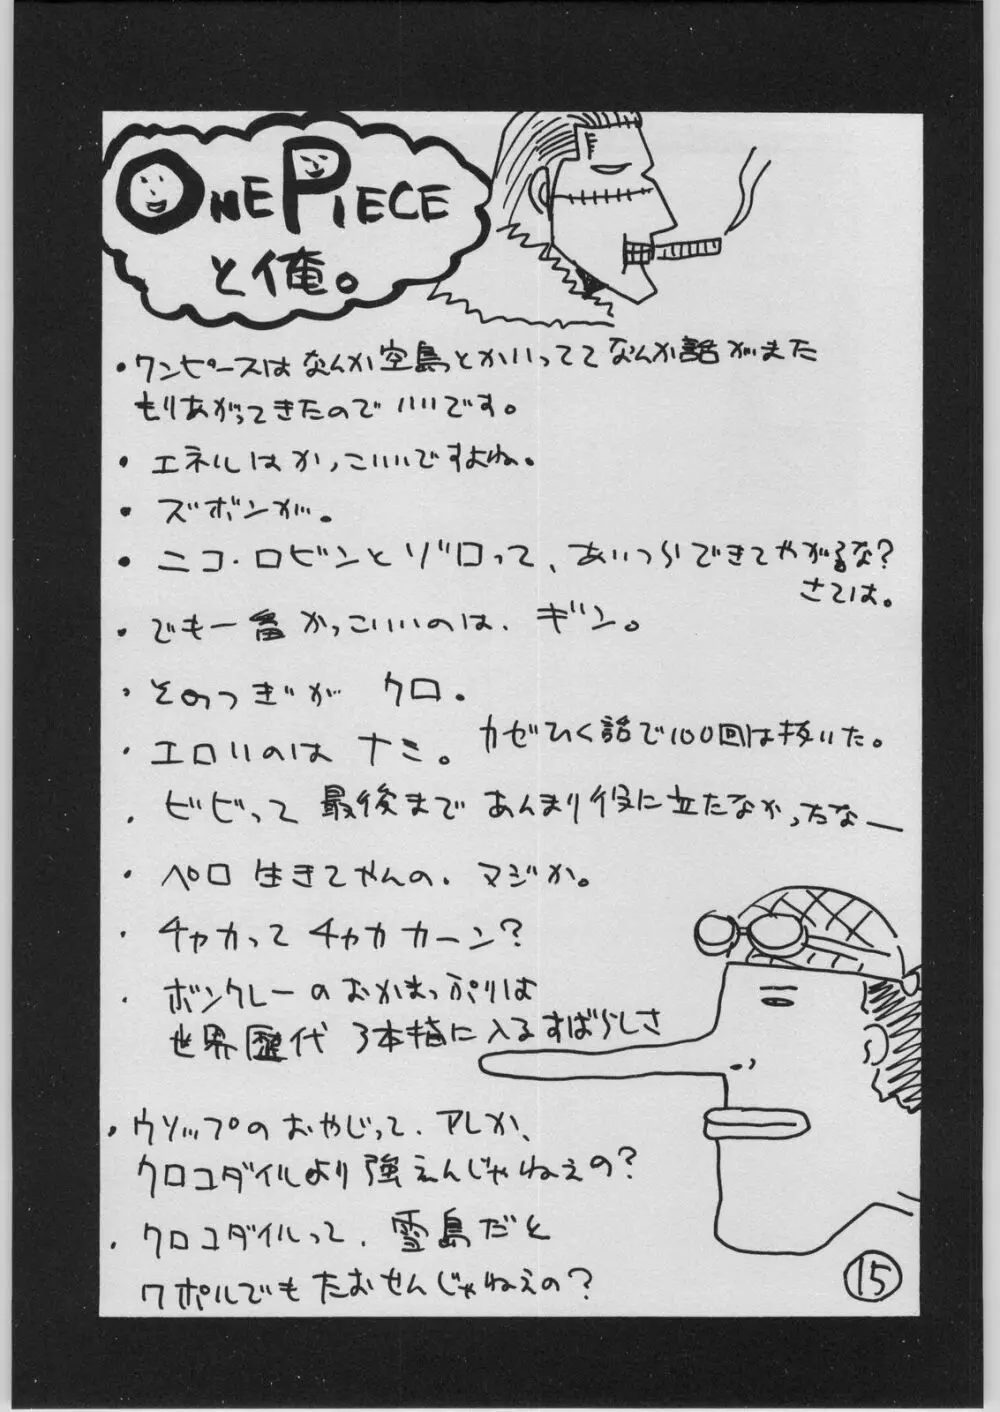 ONE PIECE
と俺。
・ワンピースはなんか空島とかいっててなんか話がまた
もりあがってきたのでいいです。
・エネルはかっこいいですよね。
・ズボンが。
・ニコ・ロビンとゾロって、あいつらできてやがるな?
さては。
・でも一番かっこいいのは、ギン。
・そのつぎが クロ。
・エロいのは ナミ。カゼひく話で100回は抜いた。
・ビビって 最後まで あんまり役に立たなかったなー
・ペロ 生きてやんの、マジか。
・チャカって チャカカーン?
・ボンクレーのおかまっぷりは
世界歴代 3本指に入るすばらしさ
・ウソップのおやじって、アレか、
クロコダイルより強えんじゃねえの?
・クロコダイルって、雪島だと
ワポルでもたおせんじゃねえの?
15